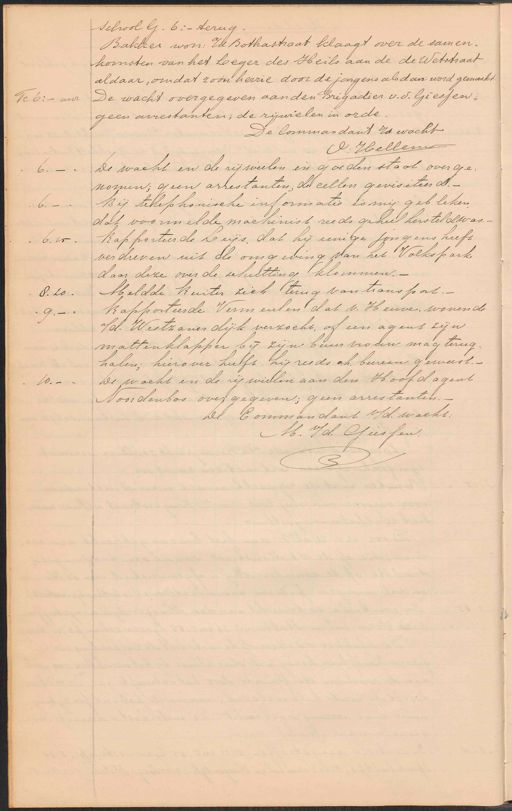 school G. 6:- terug.
Bakker won. Id Bothastraat klaagt over de samen-
komsten van het Leger des Heils aan de de Wetstraat
aldaar, omdat zoon herrie door de jongens aldaar word gemaakt
Te 6:- uur De wacht overgegeven aan den Brigadier v.d. Giessen;
geen arrestanten; de rijwielen in orde.
De Commandant Id wacht
6.-. De wacht en de rijwielen in goeden staat overge-
nomen; geen arrestanten, de cellen gevisiteerd.-
6.-. Bij telephonische informatie is mij gebleken,
dat voormelde machinist reeds geheel hersteld was-
Rapporteerde Reijs, dat hij eenige jongens heeft
verdreven uit de omgeving van het Volkspark
daar deze over de schutting klommen.-
8.20. Meldde Kurter zich terug van transport.-
9.-. Rapporteerde Vermeulen dat v. Heuve, wonende
I/d. Westzanerdijk verzocht, of een agent zijn
mattenklapper bij zijn buurvrouw mag terug-
halen, hierover heeft hij reeds ah bureau geweest.-
10.-. De wacht en de rijwielen aan den Hoofdagent
Noordenbos overgegeven; geen arrestanten.-
De Commandant I/d. wacht.
M. I/d. Giessen